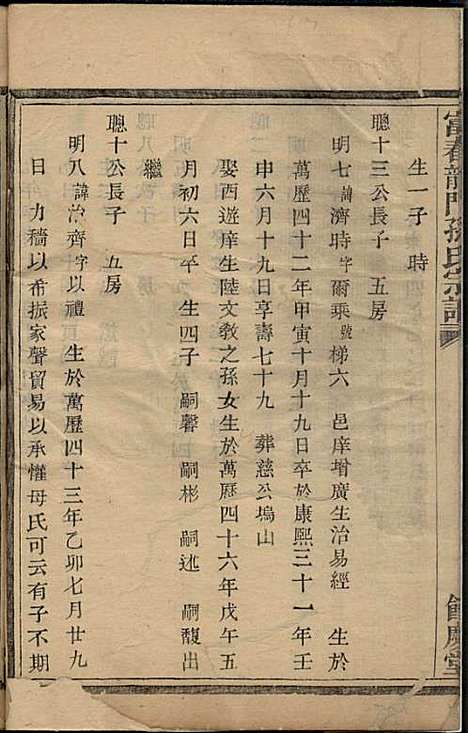 富春龍門孫氏宗譜
餘慶堂
生一子 時
聰十三公長子 五房
明七諱濟時字爾乘號梯六 邑庠增廣生治易經 生於
萬歷四十二年甲寅十月十九日卒於康熙三十一年壬
申六月十九日享壽七十九 葬慈公塢山
娶西遊庠生陸文敎之孫女生於萬歷四十六年戊午五
月初六日午 生四子 嗣馨 嗣彬 嗣述 嗣馥出
繼
聰十公長子 五房
明八諱治齊字以禮 生於萬歷四十三年乙卯七月廿九
日 力穡以希振家聲貿易以承懽母氏可云有子不期